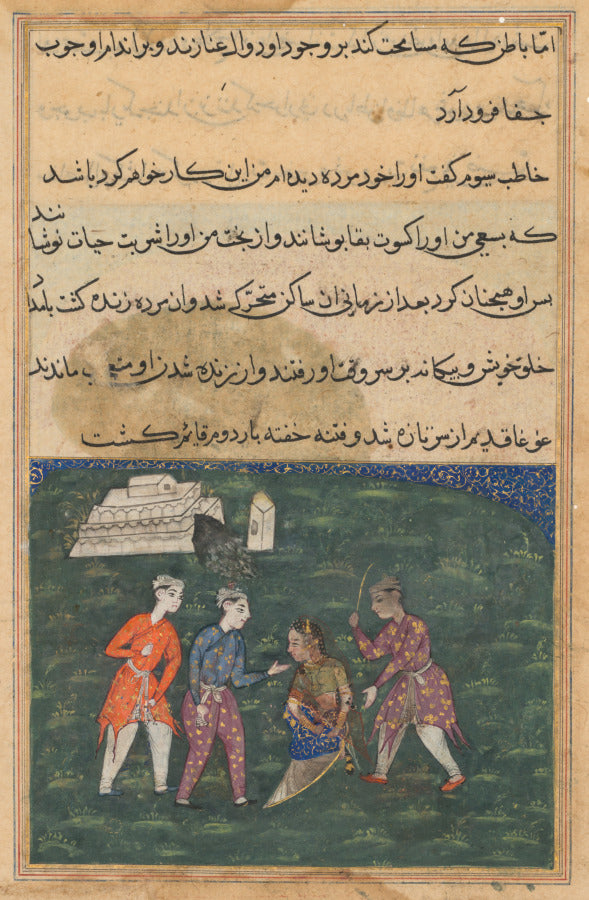 امّا باطن که مسامحت کند بر وجود او دوال عنا زند و بر اندام او چوب
جفا فرود آرد
خاطب سیوم گفت او را خود مرده دیده ام من این کار خواهم کرد باشد
که بسعی من او را کسوت بقا بوشانند و از بخت من او را شربت حیات نوشانند
بس او همچنان کرد بعد از زمانی ان ساکن متحرک شد و ان مرده زنده کشت بامداد
خلق خویش و بیکانه بر سر وقت او رفتند و از زنده شدن او متعجب ماندند
غوغا قدیم از سر تازه شد و فتنه خفته بار دوم قایم کشت